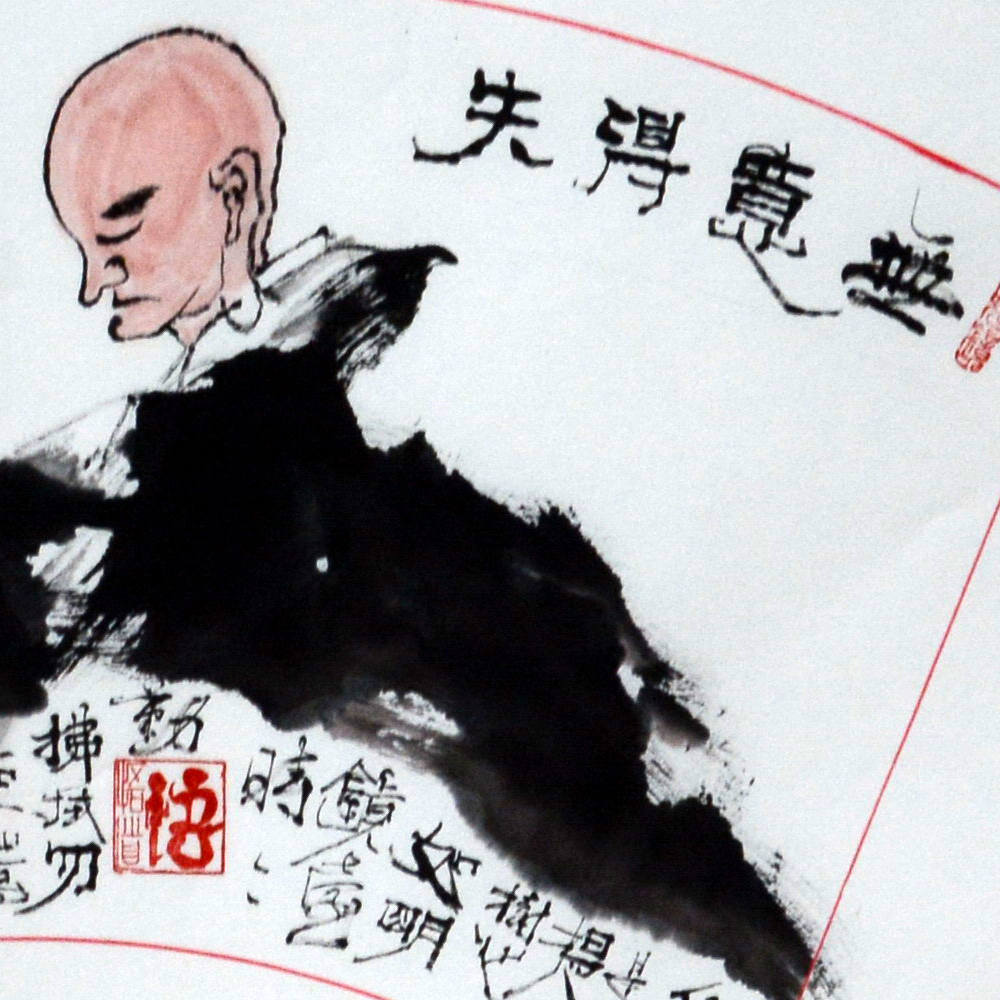 無意得失
提
樹心
如明
鏡臺
時
勤
拂拭勿
悟